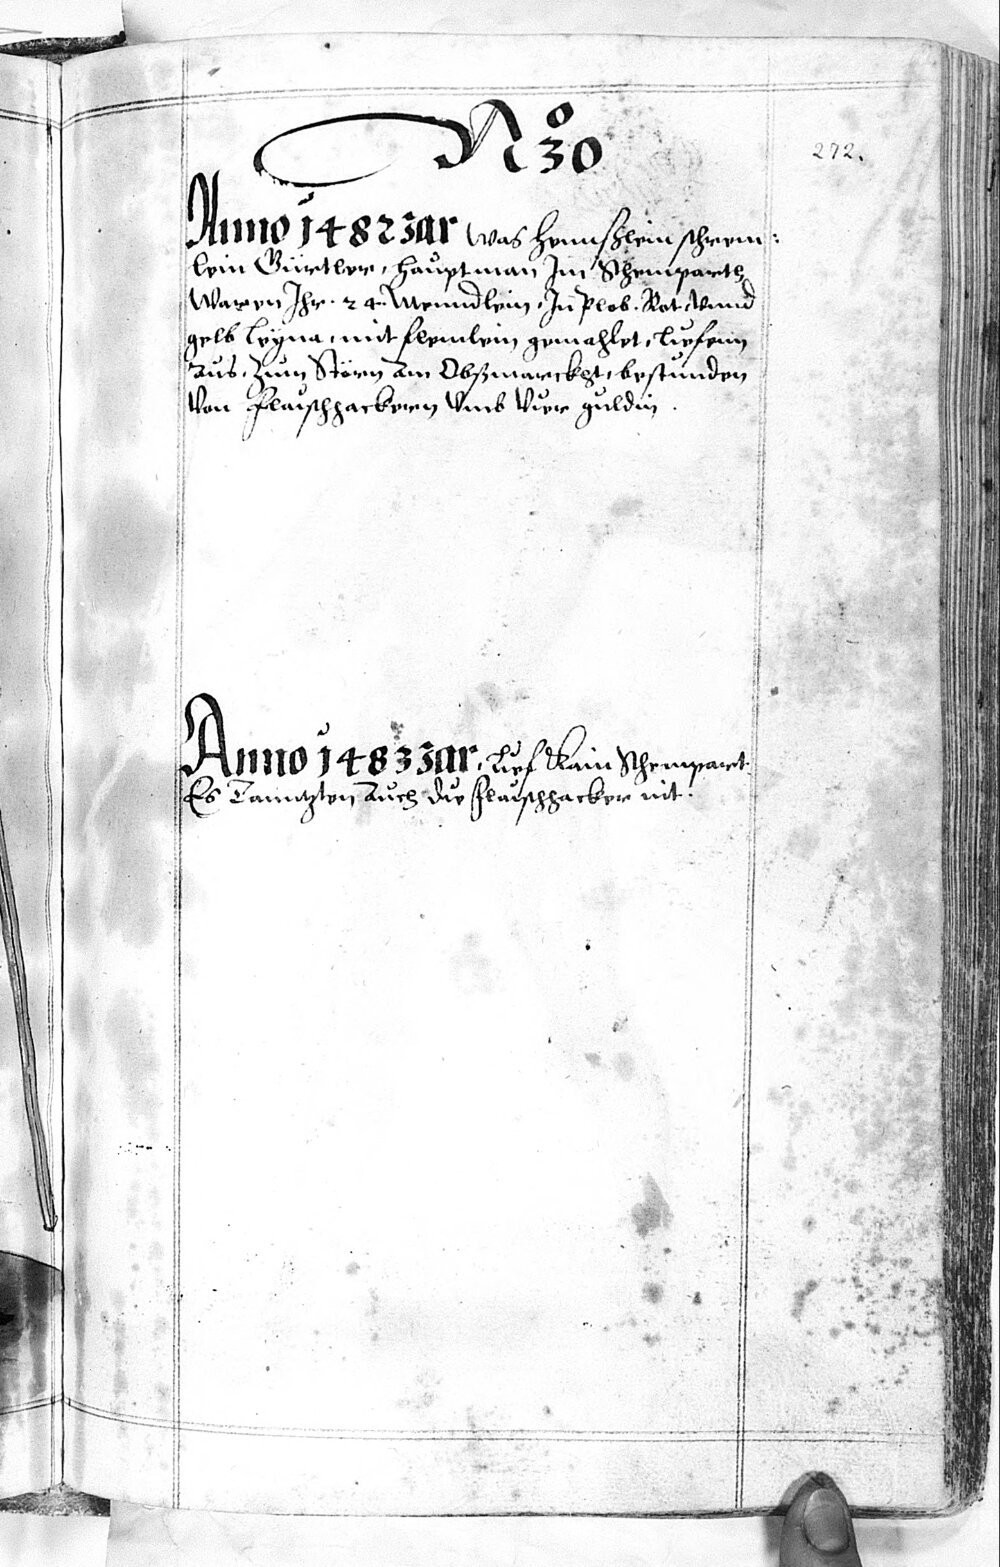 No 30
272.
Anno 1482 Jar was Hennßlein schrem:
lein Gürtler, hauptman Jm Schempartt,
Waren Jhr. 24. Menndlein, Jn Plob. Rot. Vnnd
gelb leyna, mit flemlein gemahlet, lieffenn
aus. Zum Störn am Obßmarckht, bestunden
Von flaischhackern vmb Vier guldin.
Anno 1483 Jar, lief Kain Schempart.
Es Tanntzten auch die flaischhacker nit.